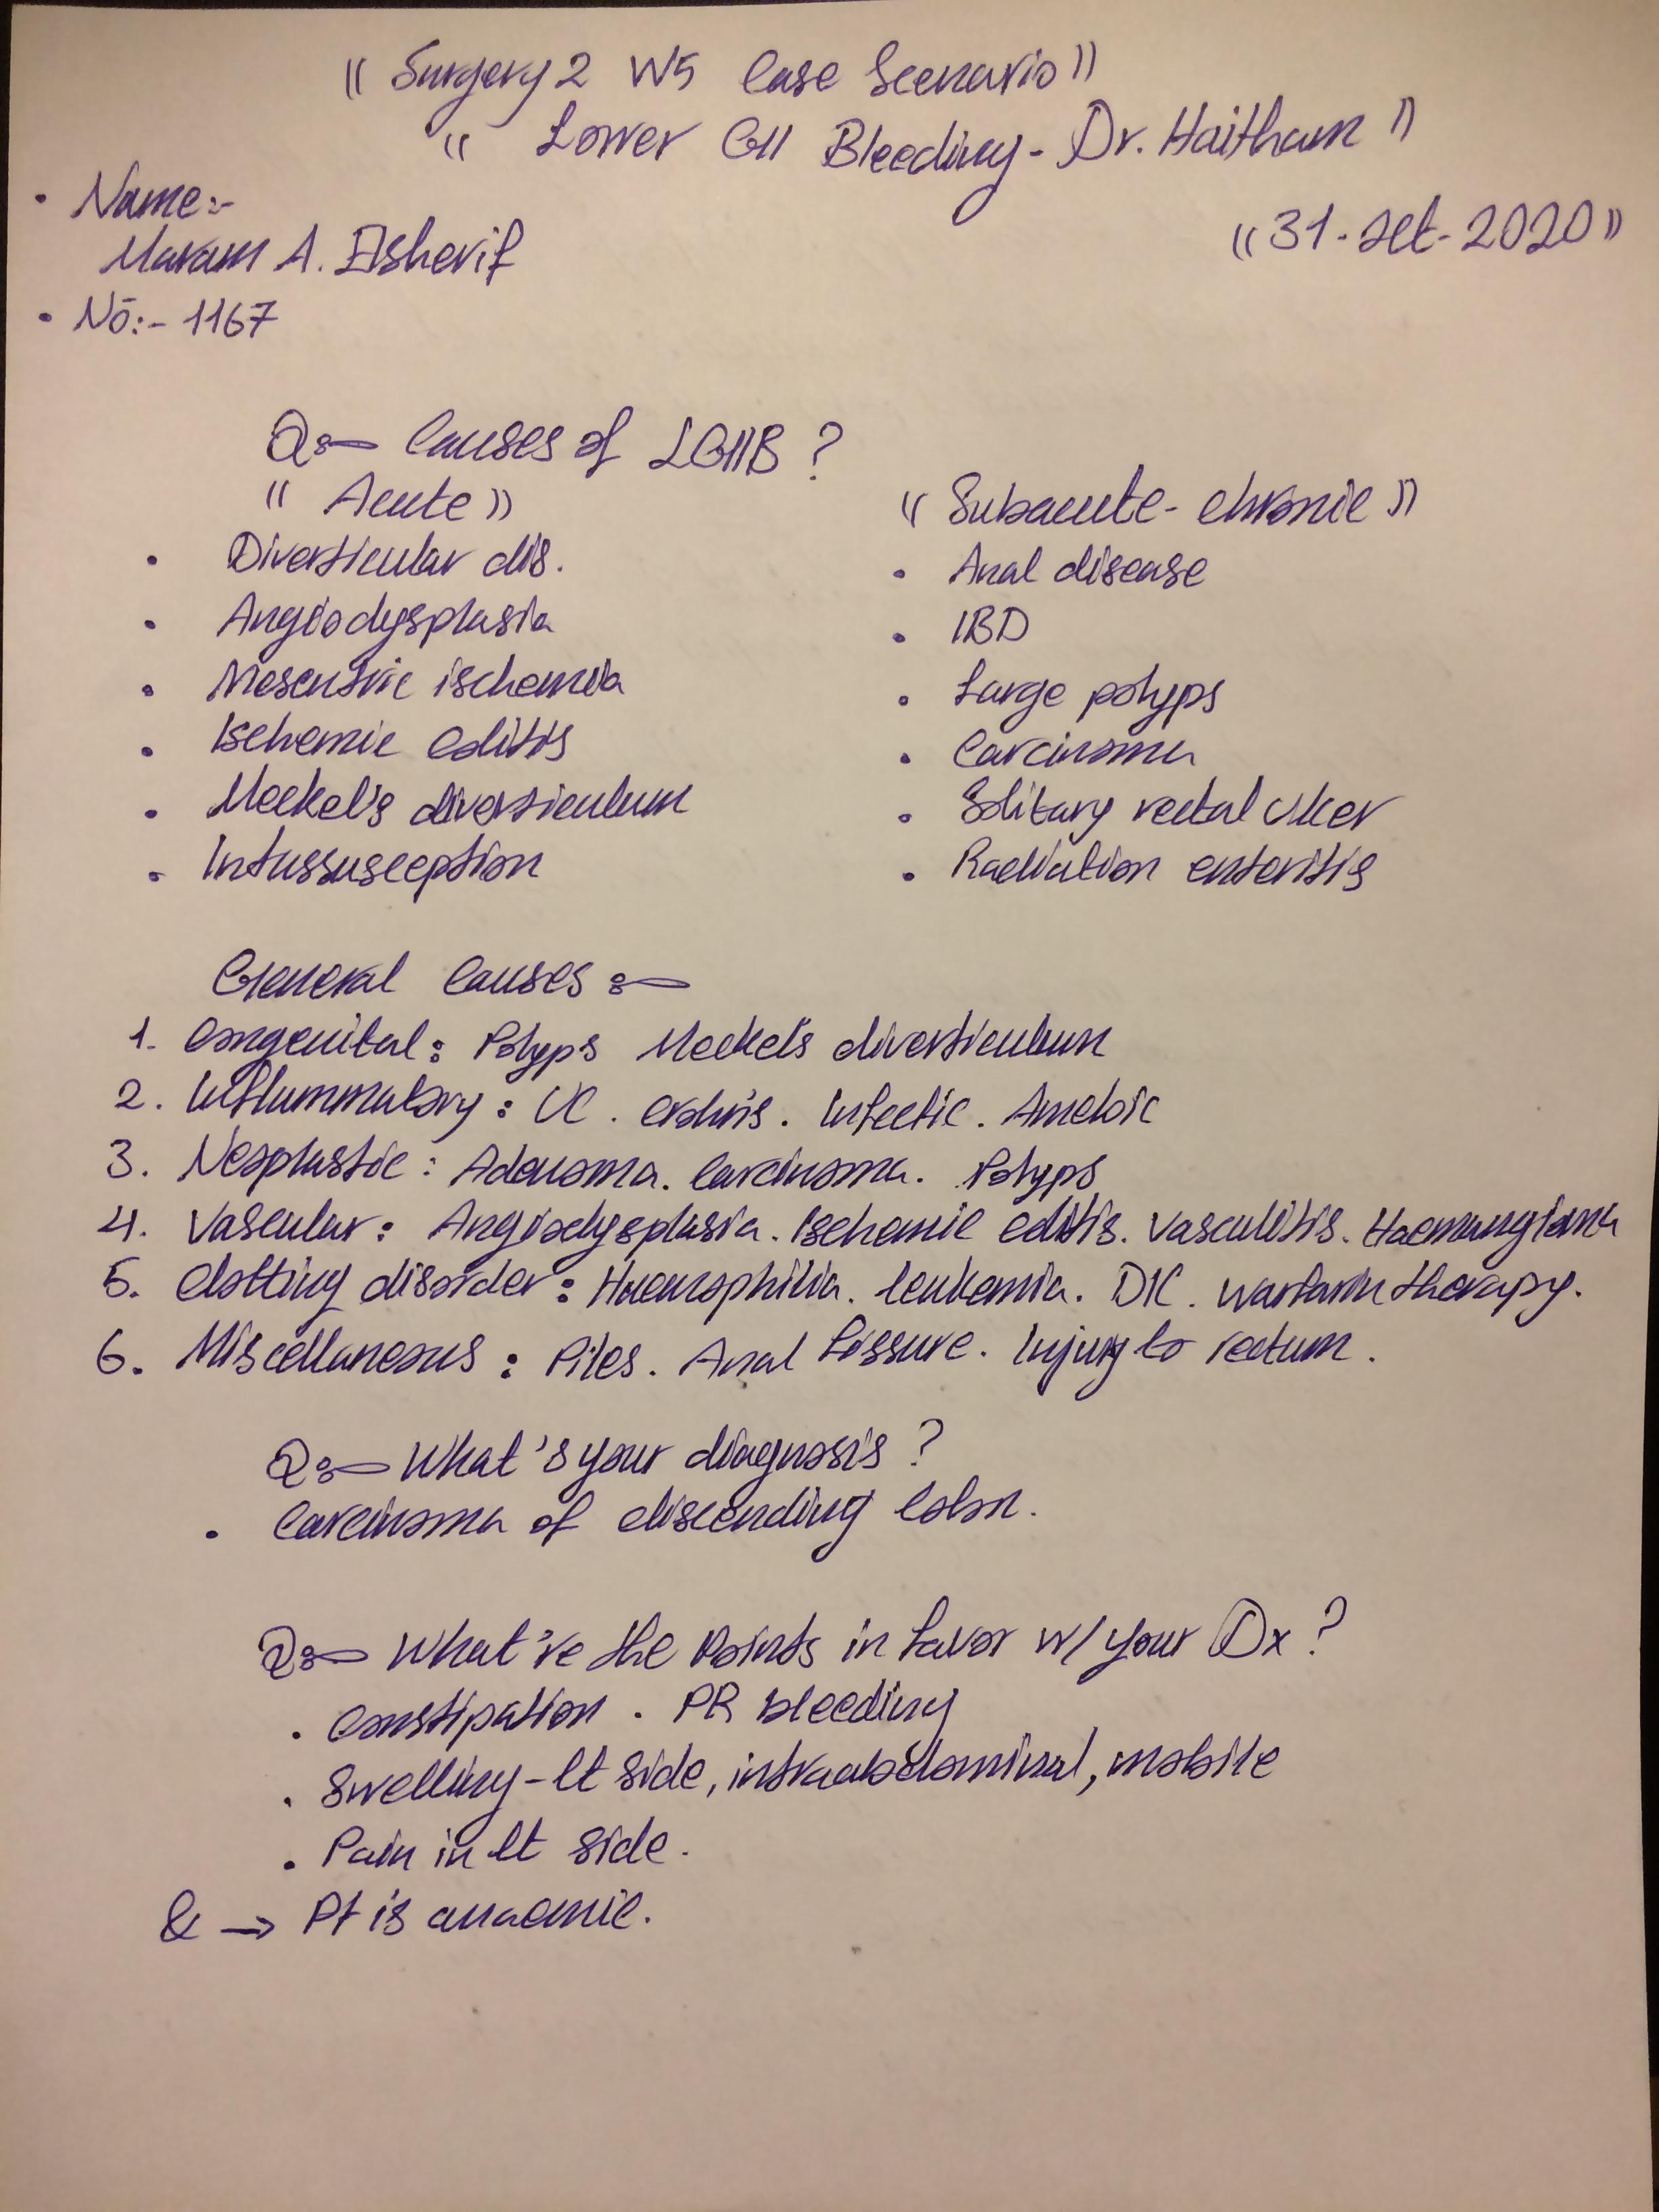 (( Surgery 2 W5 Case Scenario ))
(( Lower GI Bleeding - Dr. Haitham ))
• Name:-
Maram A. Elsherif
(( 31 - Oct - 2020 ))
• No:- 1167
Q:- Causes of LGIB ?
(( Acute ))
• Diverticular dis.
• Angiodysplasia
• Mesentric ischemia
• Ischemic colitis
• Meckel's diverticulum
• Intussusception
(( Subacute - chronic ))
• Anal disease
• IBD
• Large polyps
• Carcinoma
• Solitary rectal ulcer
• Radiation enteritis
General Causes :-
1. Congenital : Polyps Meckel's diverticulum
2. Inflammatory : UC . crohn's . Infectic . Ameboic
3. Neoplastic : Adenoma . Carcinoma . Polyps
4. Vascular : Angiodysplasia . Ischemic colitis . Vasculitis . Haemangioma
5. Clotting disorder : Haemophilia . leukemia . DIC . warfarin therapy .
6. Miscellaneous : Piles . Anal Fissure . Injury to rectum .
Q:- What's your diagnosis ?
• Carcinoma of discending Colon .
Q:- What 're the Points in favor w/ your Dx ?
. Constipation . PR bleeding
. Swelling - lt side, intraabdominal, mobile
. Pain in lt side .
& → Pt is anaemic .